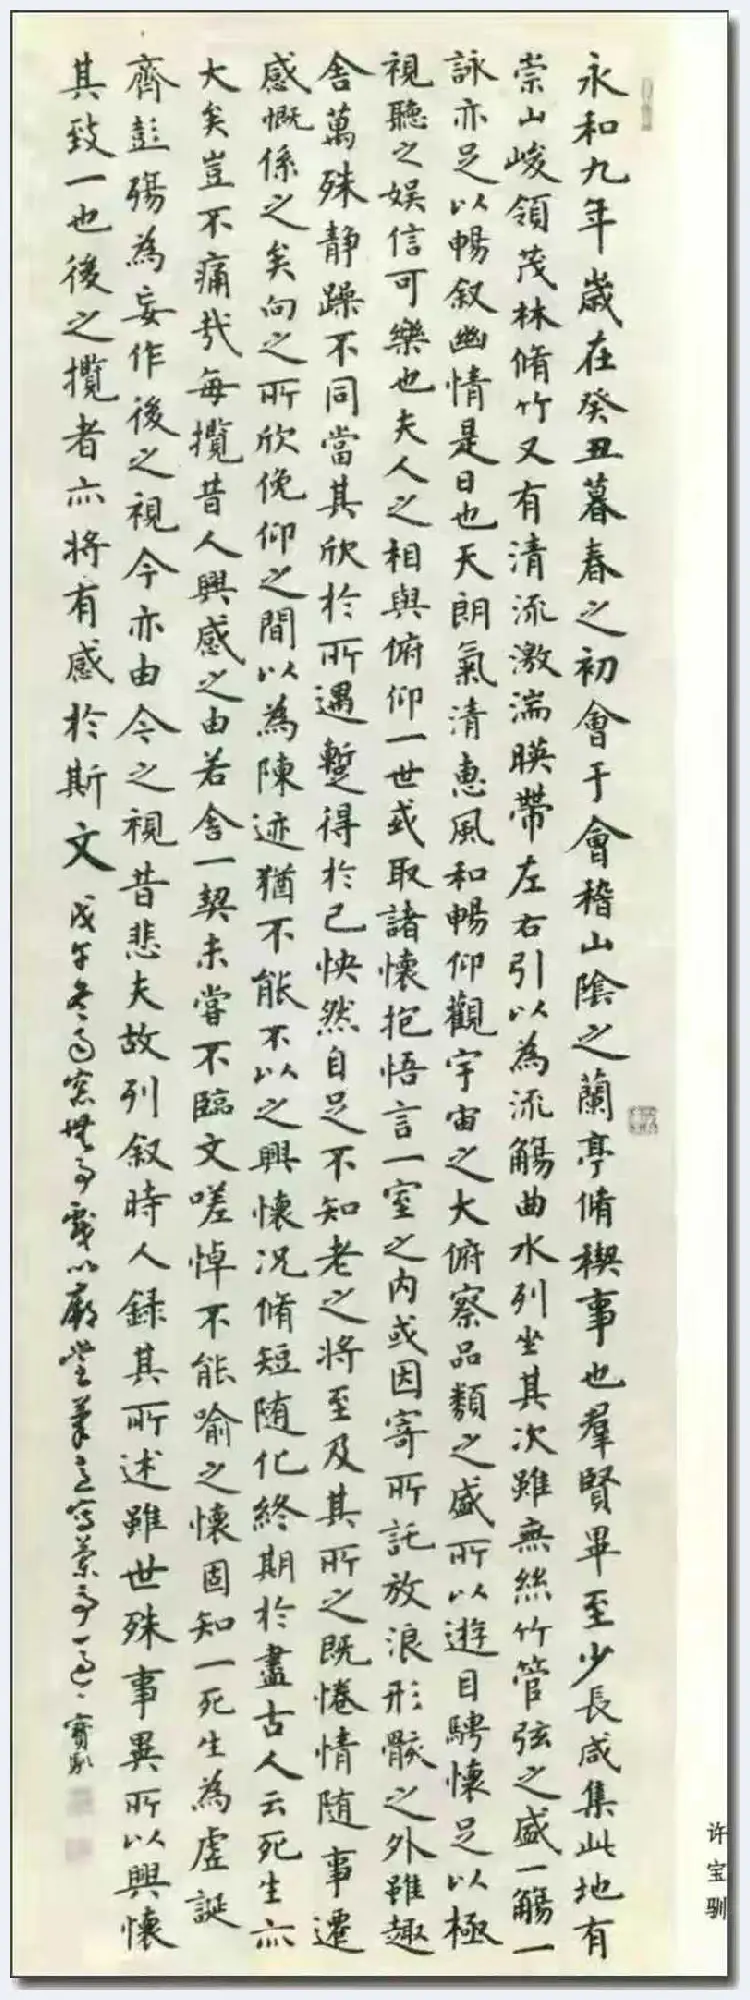 永和九年歲在癸丑暮春之初會于會稽山陰之蘭亭脩稧事也羣賢畢至少長咸集此地有
崇山峻領茂林脩竹又有清流激湍暎帶左右引以為流觴曲水列坐其次雖無絲竹管弦之盛一觴一
詠亦足以暢叙幽情是日也天朗氣清惠風和暢仰觀宇宙之大俯察品類之盛所以遊目騁懷足以極
視聽之娱信可樂也夫人之相與俯仰一世或取諸懷抱悟言一室之内或因寄所託放浪形骸之外雖趣
舍萬殊静躁不同當其欣於所遇蹔得於己怏然自足不知老之将至及其所之既惓情随事遷
感慨係之矣向之所欣俛仰之間以為陳迹猶不能不以之興懷况脩短随化終期於盡古人云死生亦
大矣豈不痛哉每攬昔人興感之由若合一契未嘗不臨文嗟悼不能喻之懷固知一死生為虚誕
齊彭殤為妄作後之視今亦由今之視昔悲夫故列叙時人録其所述雖世殊事異所以興懷
其致一也後之攬者亦将有感於斯文
戊午冬
许宝驯